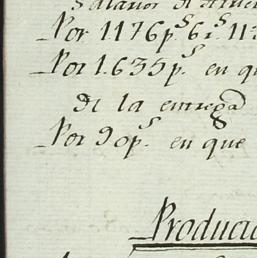 Salarios de
Por 1176p.s 6r.s 11
Por 1.635p.s en qu
de la entrega
Por 90p.s en que
Producio